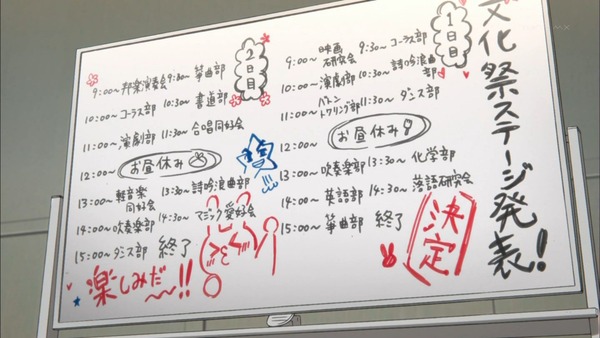 文化祭ステージ発表!
決定
1日目
9:00〜 映画研究会 9:30〜 コーラス部
10:00〜 演劇部 10:30〜 詩吟浪曲部
11:00〜 バトントワリング部 11:30〜 ダンス部
12:00〜 お昼休み
13:00〜 吹奏楽部 13:30〜 化学部
14:00〜 英語部 14:30〜 落語研究会
15:00〜 箏曲部 終了
2日目
9:00〜 邦楽演奏会 9:30〜 箏曲部
10:00〜 コーラス部 10:30〜 書道部
11:00〜 演劇部 11:30〜 合唱同好会
12:00〜 お昼休み
13:00〜 軽音楽同好会 13:30〜 詩吟浪曲部
14:00〜 吹奏楽部 14:30〜 マジック愛好会
15:00〜 ダンス部 終了
楽しみだ〜!!